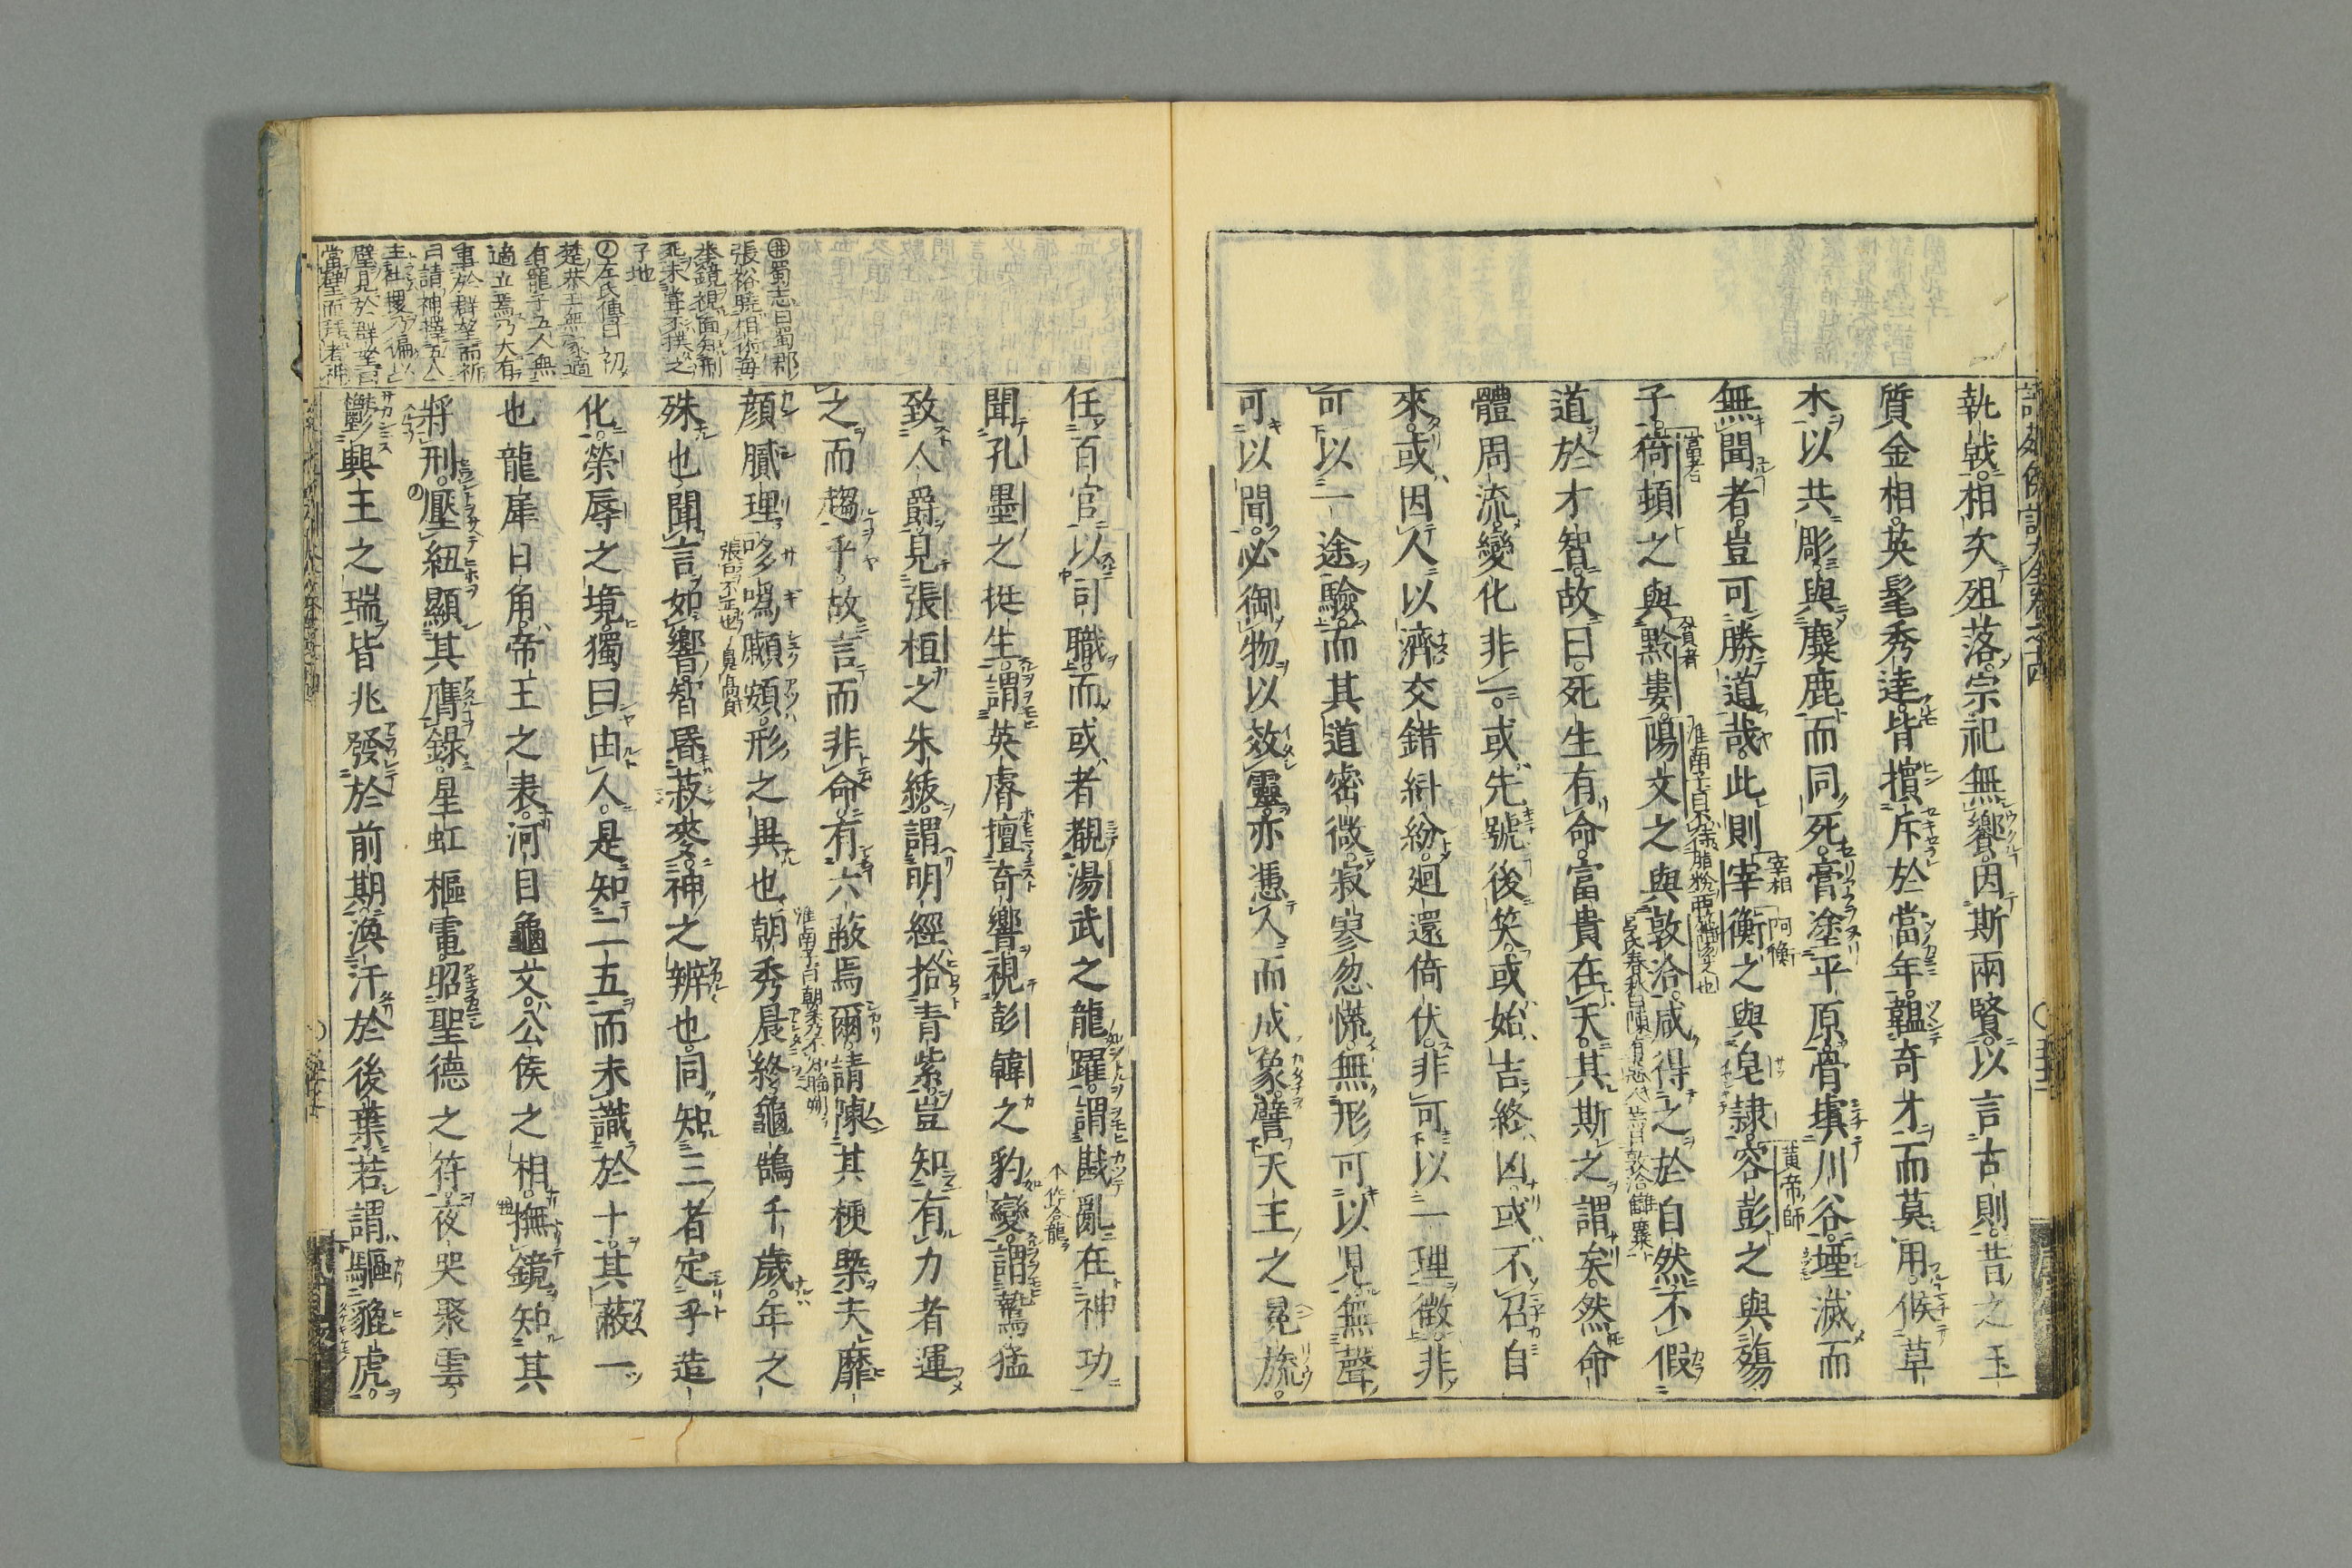 執戟。相次殂落。宗祀無饗。因斯兩賢。以言古則。昔之玉
質金相。英髦秀達。皆擯斥於當年。韞奇才而莫用。候草
木以共彫。與麋鹿而同死。膏塗平原。骨填川谷。堙滅而
無聞者。豈可勝道哉。此則宰衡之與皂隷。容彭之與殤
宰相
阿衡
黄帝師
子。猗頓之與黔婁。陽文之與敦洽。咸得之於自然。不假
富者
貧者
道於才智。故曰。死生有命。富貴在天。其斯之謂矣。然命
體周流。變化非一。或先號後笑。或始吉終凶。或不召自
來。或因人以濟。交錯糾紛。廻還倚伏。非可以一理徵。非
可以一途驗。而其道密微。寂寥忽慌。無形可以見。無聲
可以聞。必御物以效靈。亦憑人而成象。譬天王之冕旒。
任百官以司職。而或者覩湯武之龍躍。謂戡亂在神功
聞孔墨之挺生。謂英睿擅奇響。視彭韓之豹變。謂鷙猛
致人爵。見張桓之朱紱。謂明經拾青紫。豈知有力者運
之而趨乎。故言而非命。有六蔽焉。爾請陳其梗槩。夫靡
顔膩理。哆㖞顣頞。形之異也。朝秀晨終。龜鵠千歲。年之
殊也。聞言如響。智昏菽麥。神之辨也。同知三者定乎造
化。榮辱之境。獨曰由人。是知二五而未識於十。其蔽一
也。龍犀日角。帝王之表。河目龜文。公侯之相。撫鏡知其
將刑。壓紐顯其膺錄。星虹樞電。昭聖德之符。夜哭聚雲
鬱興王之瑞。皆兆發於前期。渙汗於後葉。若謂驅貔虎。
蜀志曰蜀郡
張裕曉相術每
舉鏡視面知刑
死未甞不撲之
于地
左氏傳曰初
楚恭王無冢適
有寵子五人無
適立焉乃大有
事於群望而祈
曰請神擇五人
主社稷乃徧以
璧見於群望曰
當璧而拜者神